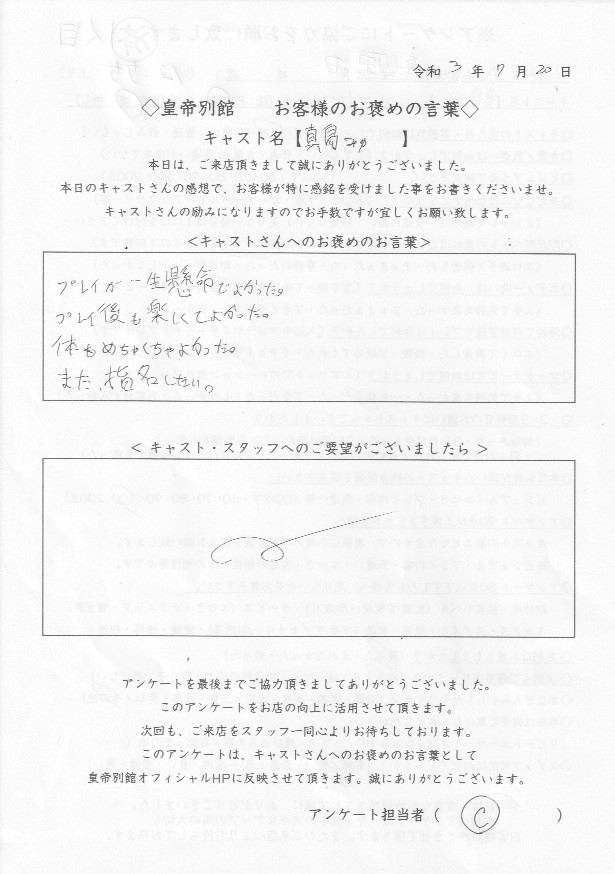 令和 3 年 7 月 20 日
◇皇帝別館　　お客様のお褒めの言葉◇
キャスト名【真島みゆ　　】
本日は、ご来店頂きまして誠にありがとうございました。
本日のキャストさんの感想で、お客様が特に感銘を受けました事をお書きくださいませ。
キャストさんの励みになりますのでお手数ですが宜しくお願い致します。
<キャストさんへのお褒めのお言葉>
プレイが一生懸命でよかった。
プレイ後も楽しくてよかった。
体もめちゃくちゃよかった。
また、指名したい。
< キャスト・スタッフへのご要望がございましたら >
アンケートを最後までご協力頂きましてありがとうございました。
このアンケートをお店の向上に活用させて頂きます。
次回も、ご来店をスタッフ一同心よりお待ちしております。
このアンケートは、キャストさんへのお褒めのお言葉として
皇帝別館オフィシャルHPに反映させて頂きます。誠にありがとうございます。
アンケート担当者（　C　）